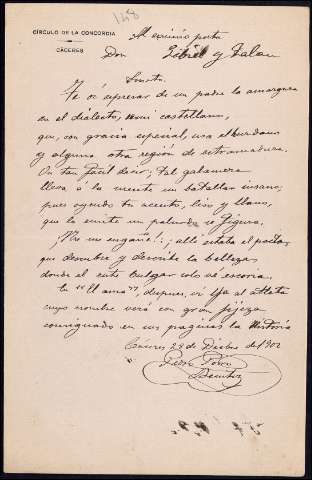 148
CÍRCULO DE LA CONCORDIA
CÁCERES
Al eximio poeta
Don Gabriel y Galan
Soneto.
Te oí expresar de un padre la amargura
en el dialecto, casi castellano,
que, con gracia especial, usa el hurdano
y alguna otra región de extremadura.
Un tan fácil decir; tal galanura
lleva á la mente un batallar insano;
pues oyendo tu acento, liso y llano,
que lo emite un palurdo se figura.
¡No me engañé!: allí estaba el poeta,
que descubre y describe la belleza
donde el ente vulgar solo vé escoria.
tu "
", despues, oí
el atleta
cuyo nombre verá con gran fijeza
consignado en sus paginas la Historia
Cáceres 28 de Dicbre de 1902
Pedro
Benitez